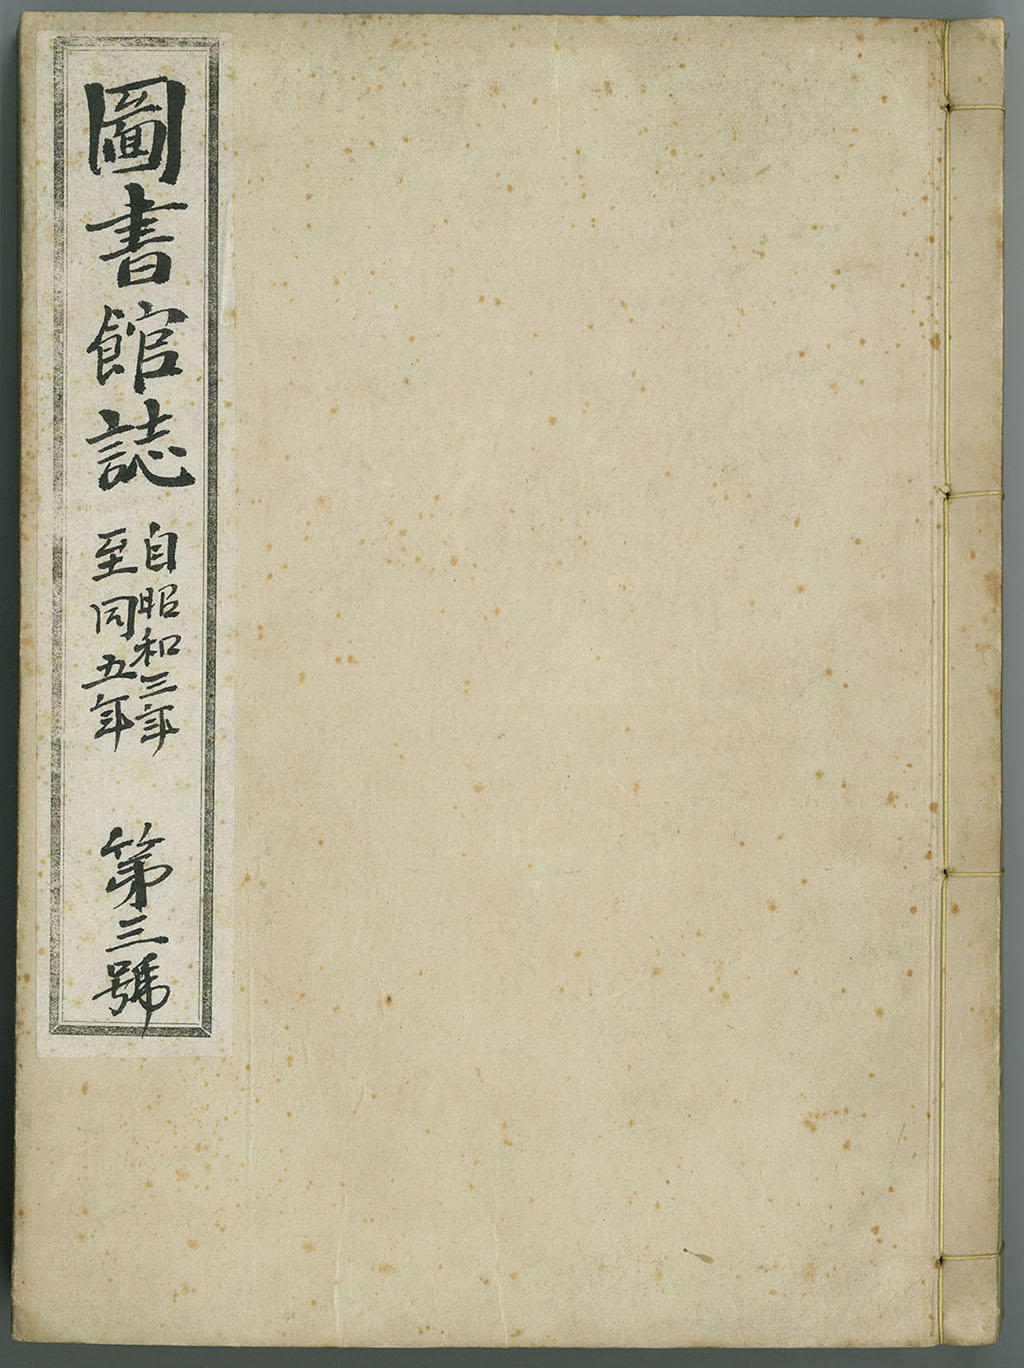 圖書館誌
自昭和三年
至同五年
第三號